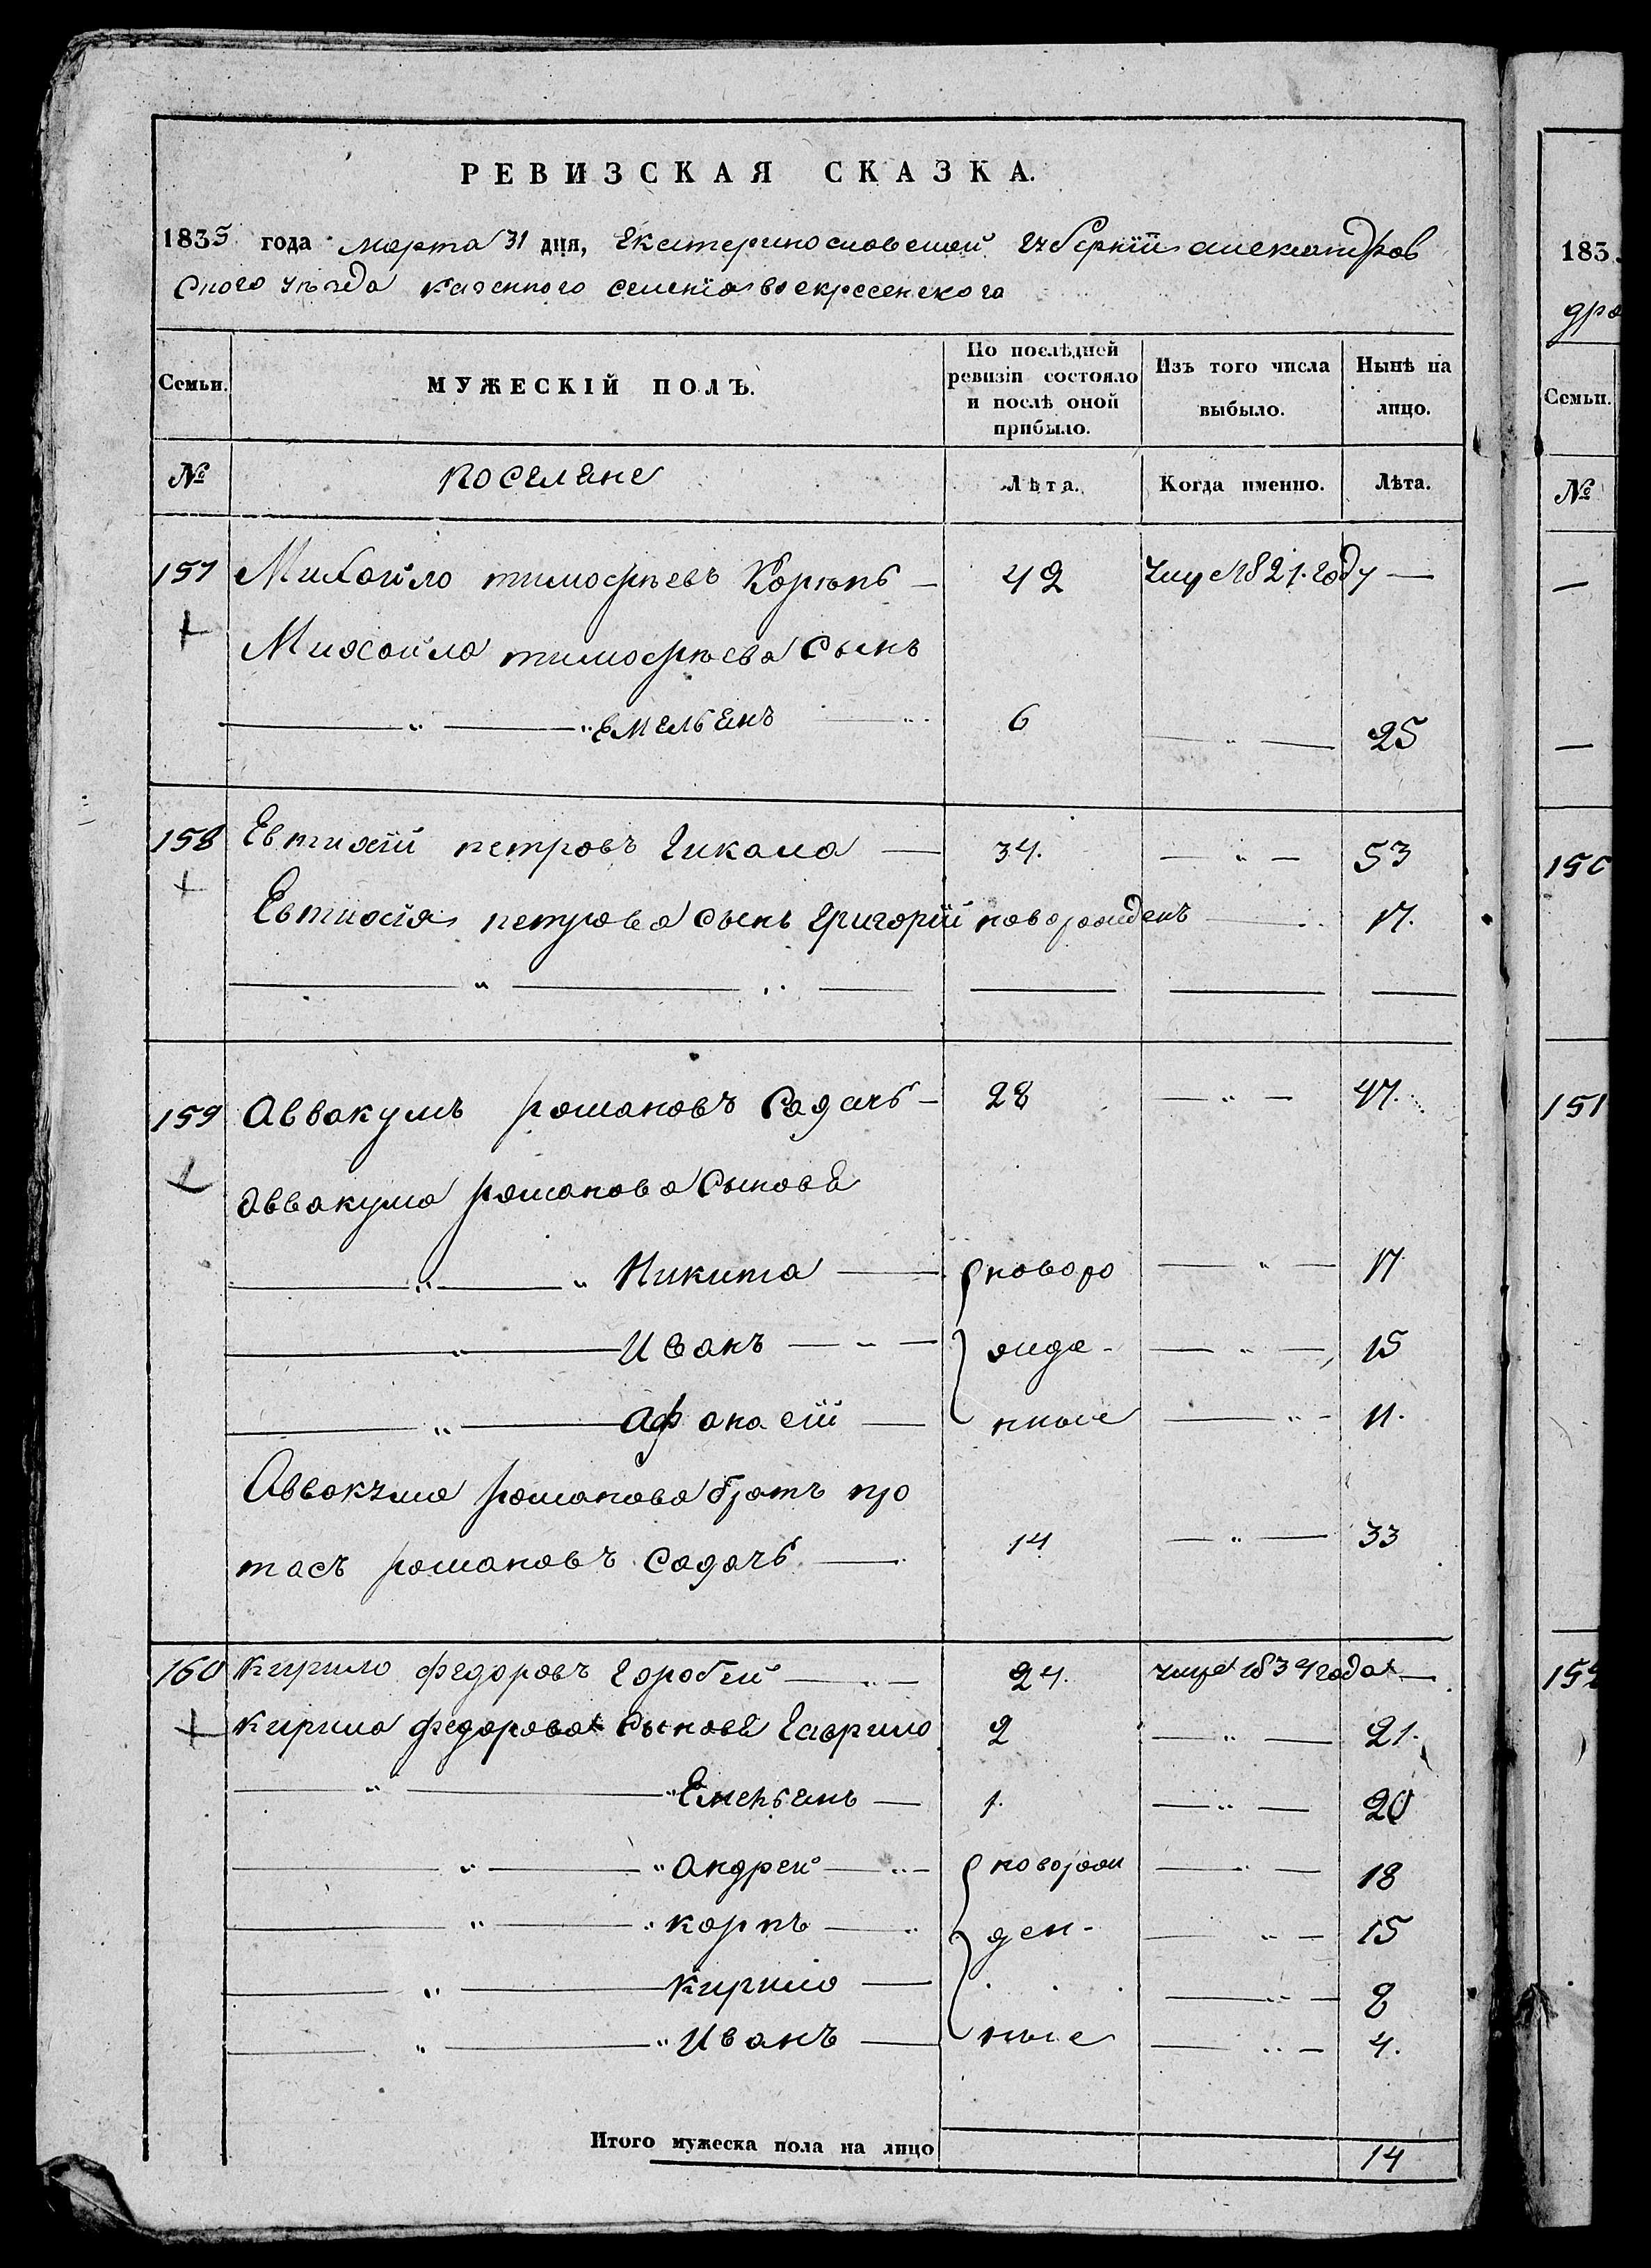 РЕВИЗСКАЯ СКАЗКА.
1835 года марта 31 дня, Екатеринославской губернiи александров
ского уезда казенного селенiя воскресенского
Семьи. МУЖЕСКIЙ ПОЛЪ. По послѣдней ревизiи состояло и послѣ оной прибыло. Изъ того числа выбыло. Нынѣ на лицо.
№ поселяне Лѣта. Когда именно. Лѣта.
157 Михайло тимофеевъ 42 1821. году —
Михайла тимофеева сынъ
Емельянъ 6 25
158 Евтихiй петровъ Гикало — 34. 53
Евтихiя петрова сынъ григорiй новорожденъ 17.
159 Аввакумъ романовъ Садачь — 28 47.
Аввакума романова сыновя
Никита — новоро 17
Иванъ — жде- 15
афонасiй — нные 11.
Аввакума романова братъ про
тасъ романовъ Садачь — 14 33
160 кирило федоровъ Горобей — 24. 1834 года —
кирила федорова сыновя Гаврило 2 21.
Емельянъ — 1. 20
андрей — новорож 18
карпъ — ден- 15
кирило — 8
Иванъ — ные 4.
Итого мужеска пола на лицо 14
183
дро
Семьи.
№
150
151
152